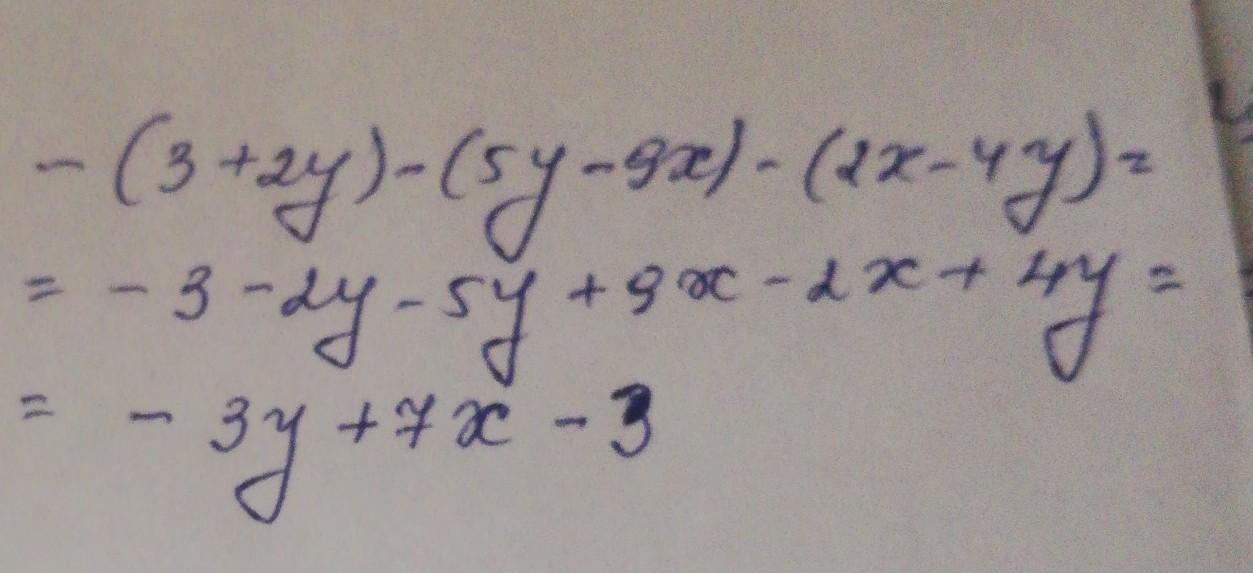 - (3 + 2y) - (5y - 9x) - (2x - 4y) =
= - 3 - 2y - 5y + 9x - 2x + 4y =
= - 3y + 7x - 3